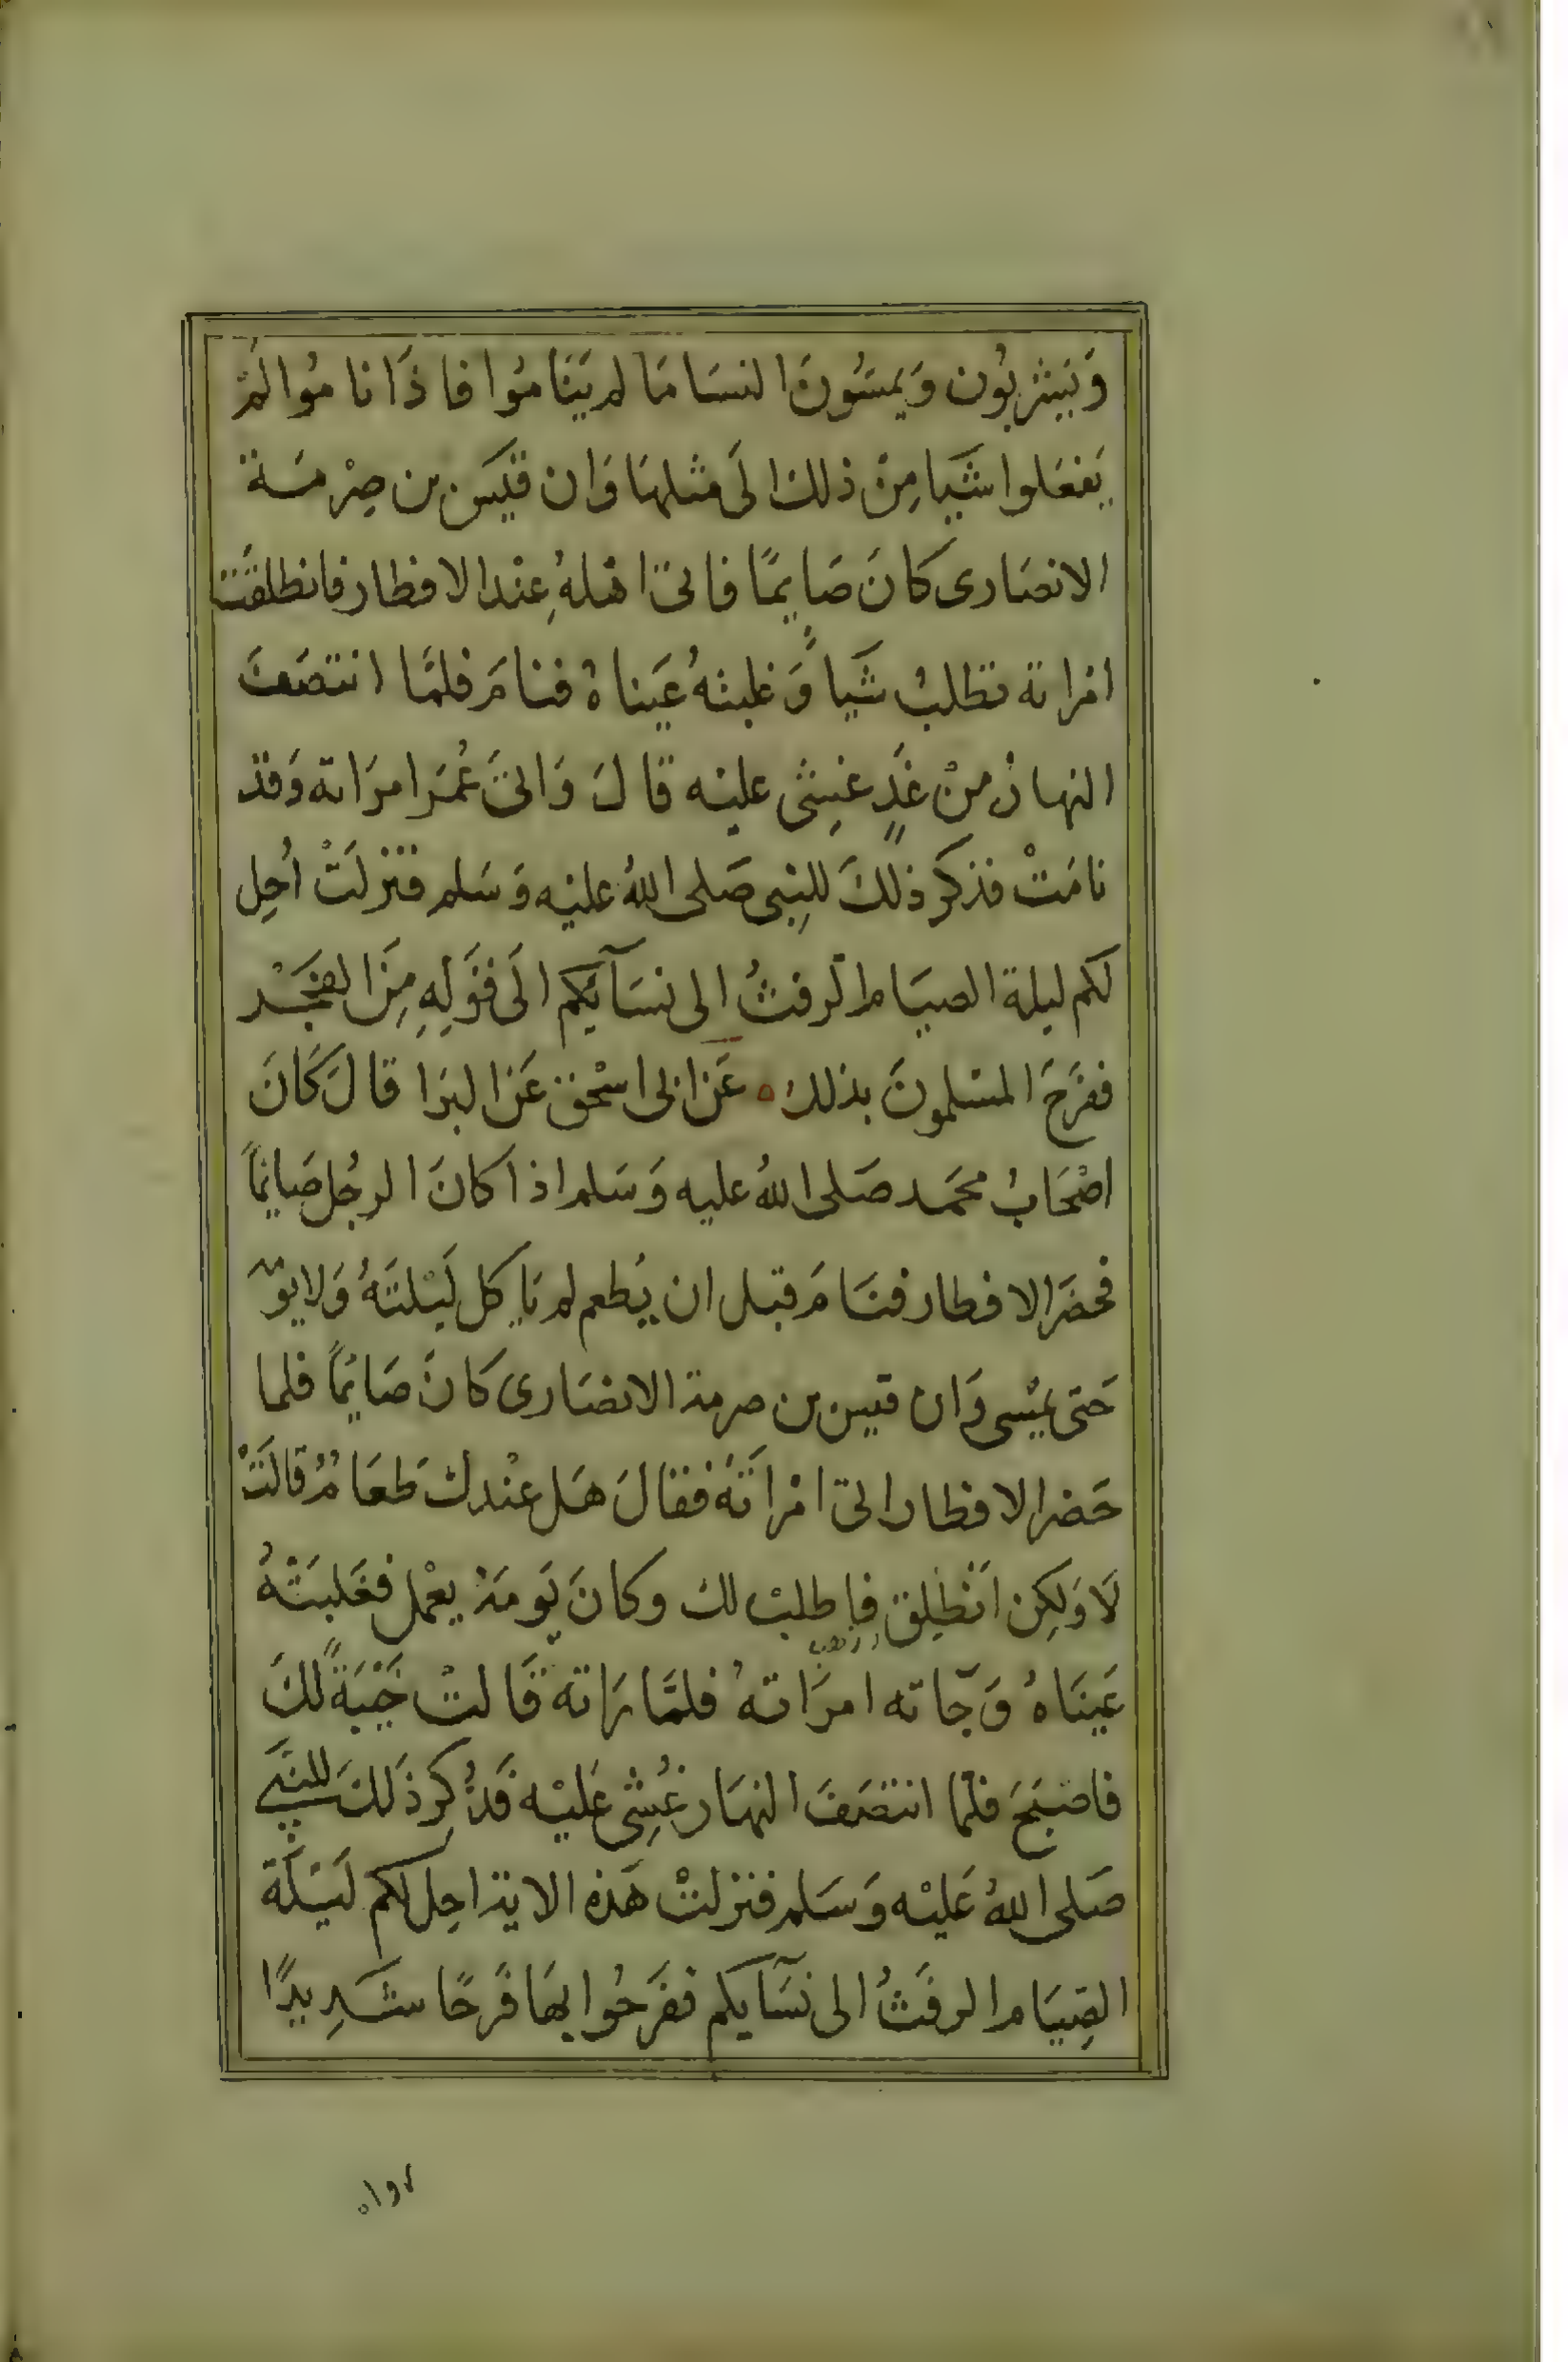 وَيَشْرَبُون وَيمسّونَ النسَا مَا لم يَنَامُوا فاذَا نامُوا لمْ
يَفعَلوا شَيا مِنْ ذلك الَى مثلهَا وَان قيسَ بن صِرْمَة
الانصَارى كَانَ صَايمًا فاتى اهْلهُ عِنْد الافطار فانطلقَت
امْراته تطلبُ شَياً وَغلبتهُ عَيناهُ فنامَ فلمَّا انتصَفَ
النهارُ منْ غَدٍ غشِى عليْه قالَ وَاتى عُمَر امرَاته وَقدْ
نامَتْ فذكر ذلكَ للنبِى صَلى اللهُ عليْه وَسَلم فنزلَتْ أحِل
لكم ليلة الصيَام الرفثُ الى نسَآيكم الَى قوَلِهِ مِنَ الفجَر
ففَرَحَ المسْلمونَ بذلك ه عَن ابى اسْحق عَن البرَا قالَ كَانَ
اصْحَابُ محمَد صَلى اللهُ عليه وَسَلم اذا كانَ الرجُل صَايمًا
فحضَر الافطار فنَامَ قبل ان يُطعم لم يَاكل لَيْلتَهُ وَلا يومه
حَتى يمْسى وَان قيس بن صرمة الانصَارى كانَ صَايمًا فلما
حَضر الافطار اتى امْراتَهُ فقالَ هَل عنْدك طَعَامُ قالَتْ
لَا وَلكِن انْطَلِق فاطلبْ لك وكانَ يَومَهُ يعْمل فغَلبَتْهُ
عَينَاهُ وَجآته امرَاتهُ فلمَّا رَاته قَالتْ خَيْبَةً لَكَ
فاصْبَحَ فلمّا انتصَفَ النهَار غُشِى عَليْه فَذُكِر ذَلكَ للنبَى
صَلى اللهُ عَليْه وَسَلم فنزلتْ هَذه الاية احِل لكم لَيْلَة
الصِيَام الرفَثُ الى نسَآيكم ففَرَحُوا بهَا فَرحًا شَدِيدًا